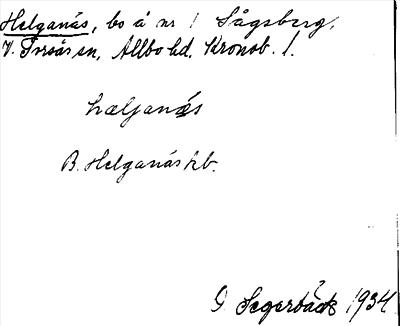 Helganäs, bo å nr 1 Sågsberg,
V. Torsås sn, Allbo hd. Kronob. l.
hæljanä́s
B. Helganäs kb.
G. Segerbäck 1934